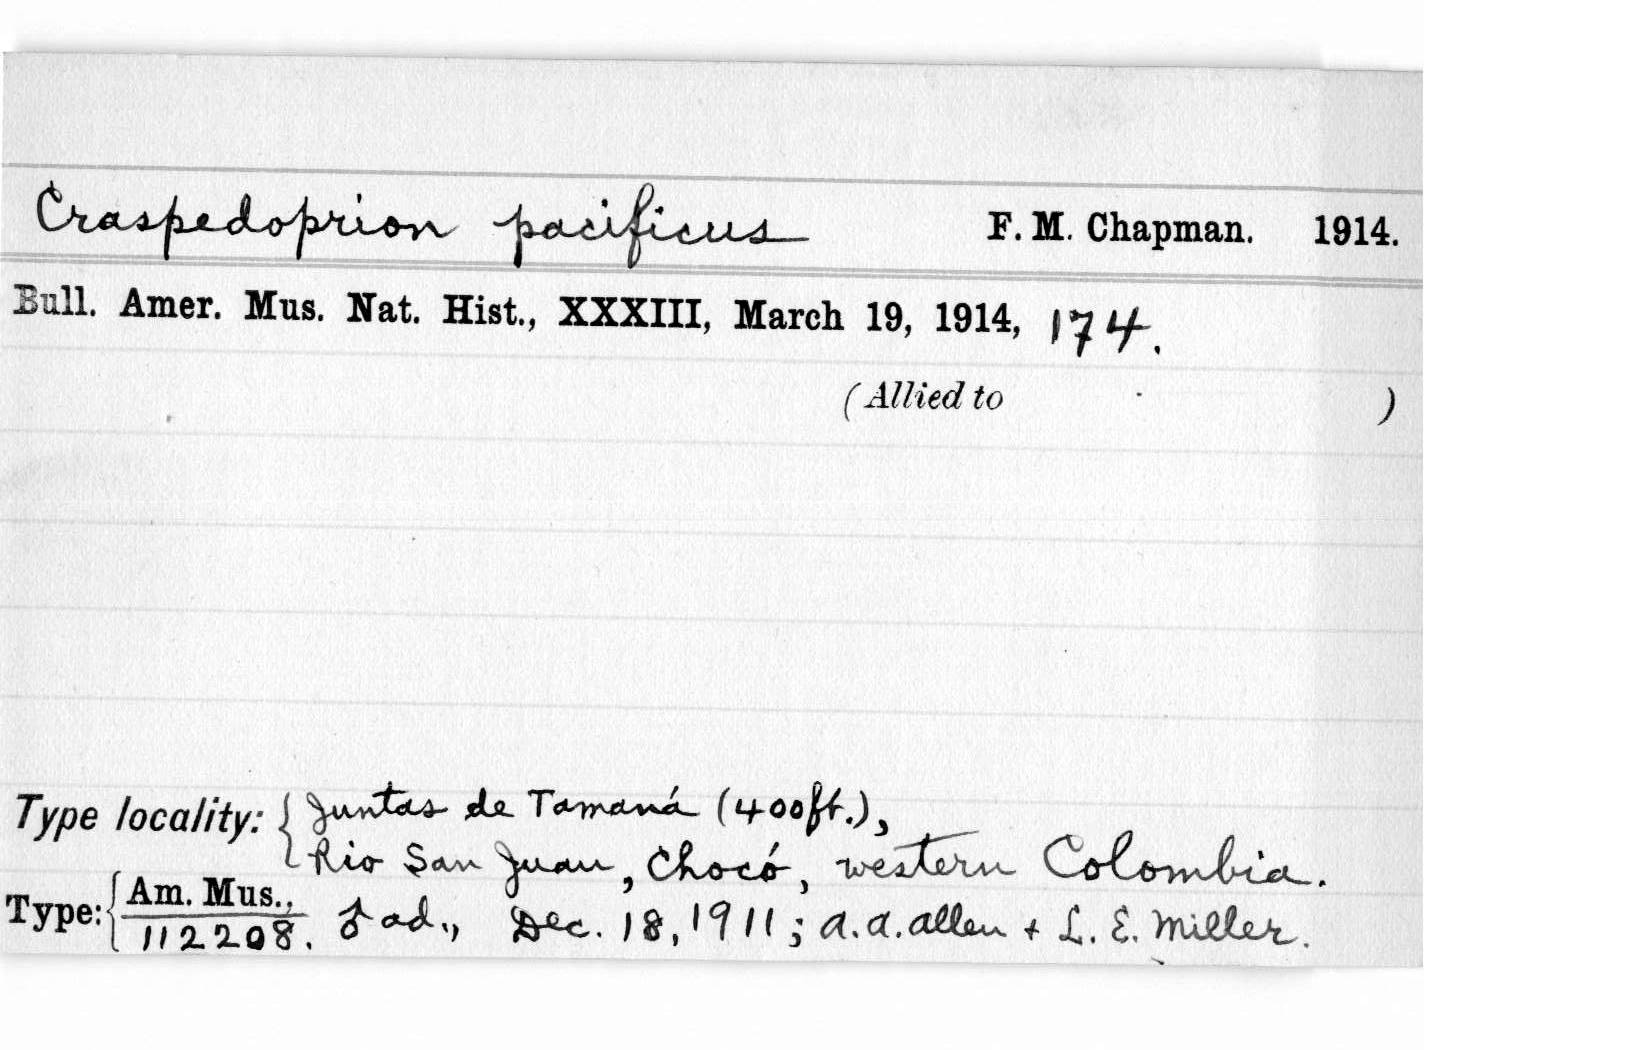 Craspedoprion pacificus F. M. Chapman. 1914.
Bull. Amer. Mus. Nat. Hist., XXXIII, March 19, 1914, 174.
(Allied to )
Type locality: { Juntas de Tamaná (400ft.),
Rio San Juan, Chocó, western Colombia.
Type: { Am. Mus.,
112208. ♂ ad., Dec. 18, 1911; A.A. Allen + L. E. Miller.